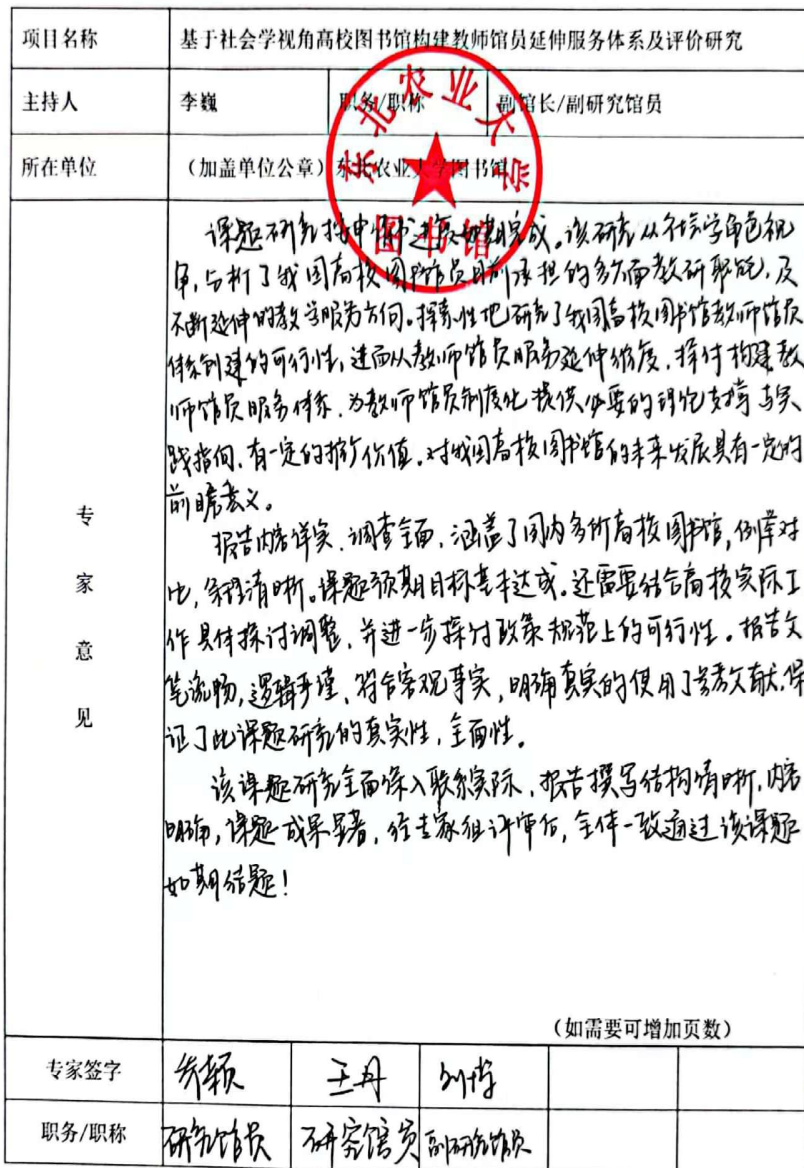 项目名称 基于社会学视角高校图书馆构建教师馆员延伸服务体系及评价研究
主持人 李巍 职务/职称 副馆长/副研究馆员
所在单位 (加盖单位公章) 东北农业大学图书馆
东北农业大学
图书馆
专家意见
课题研究按申请书进度如期完成。该研究从社会学角色视
角,分析了我国高校图书馆员目前承担的多方面教研职能,及
不断延伸的教学服务方向。探索性地研究了我国高校图书馆教师馆员
体系创建的可行性,进而从教师馆员服务延伸维度,探讨构建教
师馆员服务体系,为教师馆员制度化提供必要的理论支撑与实
践指向,有一定的推广价值。对我国高校图书馆的未来发展具有一定的
前瞻意义。
报告内容详实,调查全面,涵盖了国内多所高校图书馆,例举对
比,条理清晰。课题预期目标基本达成。还需要结合高校实际工
作具体探讨调整,并进一步探讨政策规范上的可行性。报告文
笔流畅,逻辑严谨,符合客观事实,明确真实的使用了参考文献,保
证了此课题研究的真实性,全面性。
该课题研究全面深入联系实际,报告撰写结构清晰,内容
明确,课题成果显著,经专家组评审后,全体一致通过该课题
如期结题!
(如需要可增加页数)
专家签字 颖 王丹 刘
职务/职称 研究馆员 研究馆员 副研究馆员